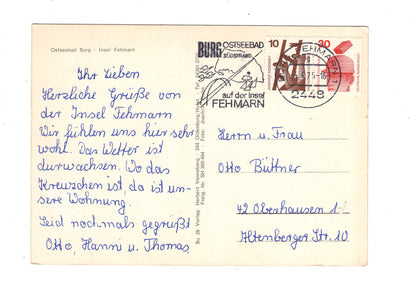 Ostseebad Burg - Insel Fehmarn
Ihr Lieben
Herzliche Grüße von
der Insel Fehmarn
Wir fühlen uns hier sehr
wohl. Das Wetter ist
durwachsen. Wo das
Kreuzchen ist da ist un-
sere Wohnung.
Seid nochmals gegrüßt
Otto, Hanni u. Thomas
BURG OSTSEEBAD
SÜDSTRAND
auf der Insel
FEHMARN
10
30
FEHMARN
2448
Herrn u. Frau
Otto Büttner
42 Oberhausen 1
Altenberger Str. 10